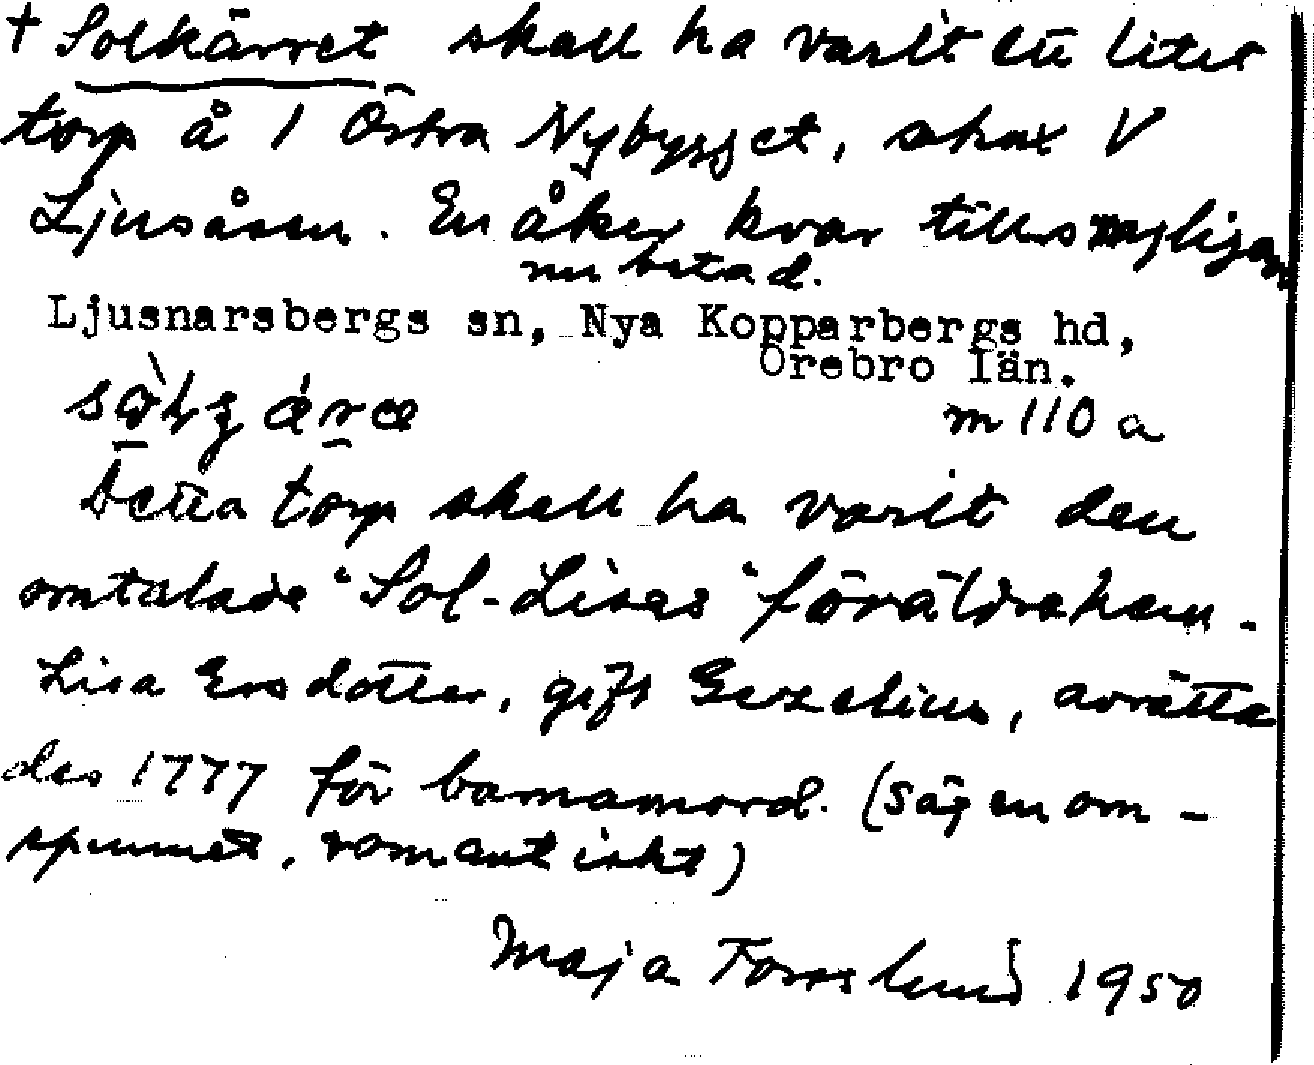 † Solkärret skall ha varit ett litet
torp å 1 Östra Nybygget, strax V
Ljusåsen. En åker kvar tills nyligen
nu betad.
Ljusnarsbergs sn, Nya Kopparbergs hd,
Örebro län.
m 110 a
Detta torp skall ha varit den
omtalade "Sol-Lisas" föräldrahem.
Lisa Ersdotter, gift Gezelius, avrätta
des 1777 för barnamord. (sägenom-
spunnet, romantiskt)
Maja Forsslund 1950